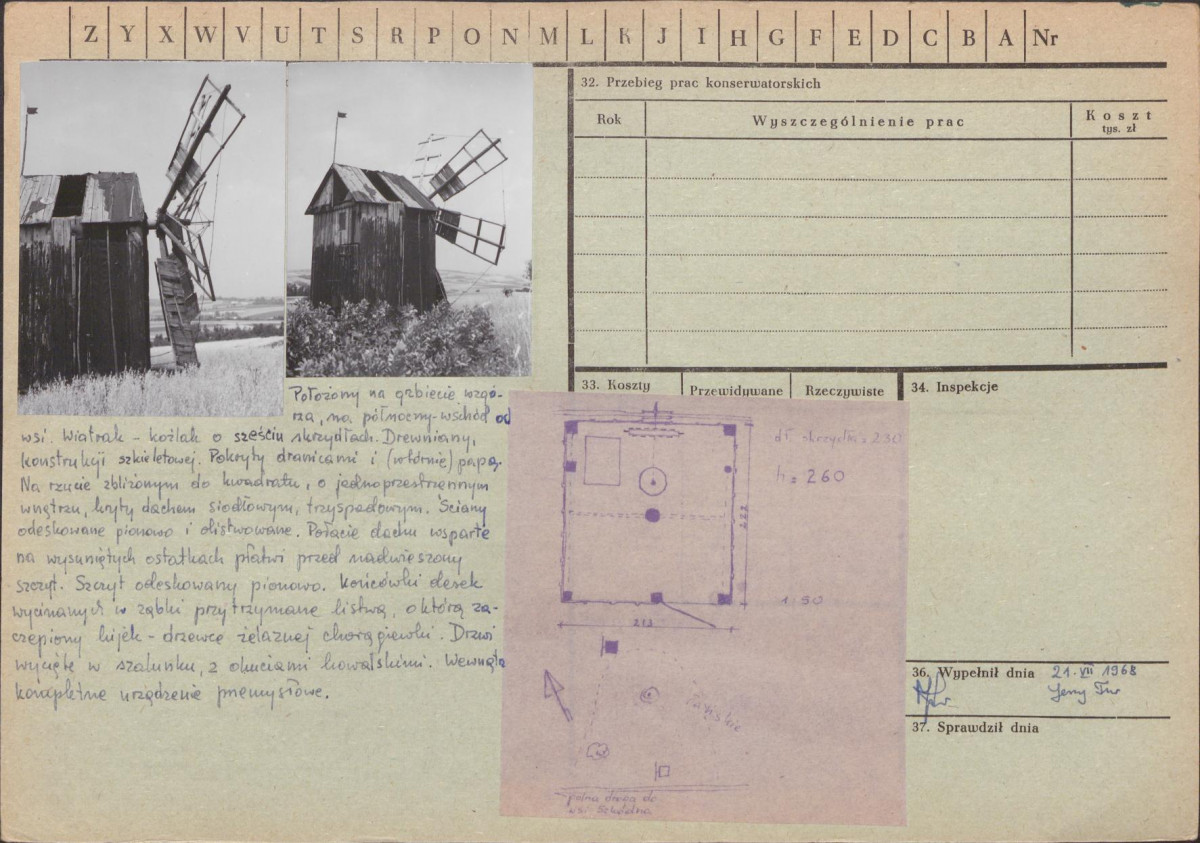 Z Y X W V U T S R P O N M L K J I H G F E D C B A Nr
32. Przebieg prac konserwatorskich
Rok
Wyszczególnienie prac
Koszt
tys. zł
33. Koszty
Przewidywane
Rzeczywiste
34. Inspekcje
Położony na grzbiecie wzgó-
rza, na północny-wschód od
wsi. Wiatrak - koźlak o sześciu skrzydłach. Drewniany,
konstrukcji szkieletowej. Pokryty dranicami i (wtórnie) papą.
Na rzucie zbliżonym do kwadratu, o jednoprzestrzennym
wnętrzu, kryty dachem siodłowym, trzyspadowym. Ściany
odeskowane pionowo i olistwowane. Połacie dachu wsparte
na wysuniętych ostatkach płatwi przed nadwieszony
szczyt. Szczyt odeskowany pionowo. Końcówki desek
wycinanych w ząbki przytrzymane listwą, o którą za-
czepiony kijek - drzewce żelaznej chorągiewki. Drzwi
wycięte w szalunku, z okuciami kowalskimi. Wewnątrz
kompletne urządzenie przemysłowe.
dł. skrzydła = 230
h = 260
222
1:50
213
polna droga do
wsi Szkodna
36. Wypełnił dnia 21. VII 1968
Jerzy Tur
37. Sprawdził dnia